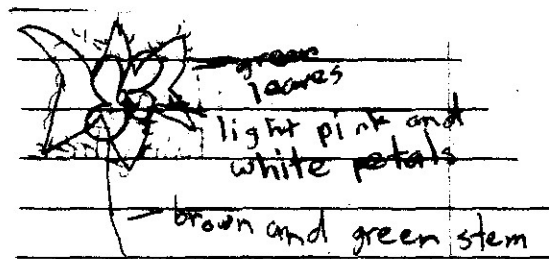 green
leaves
light pink and
white petals
brown and green stem